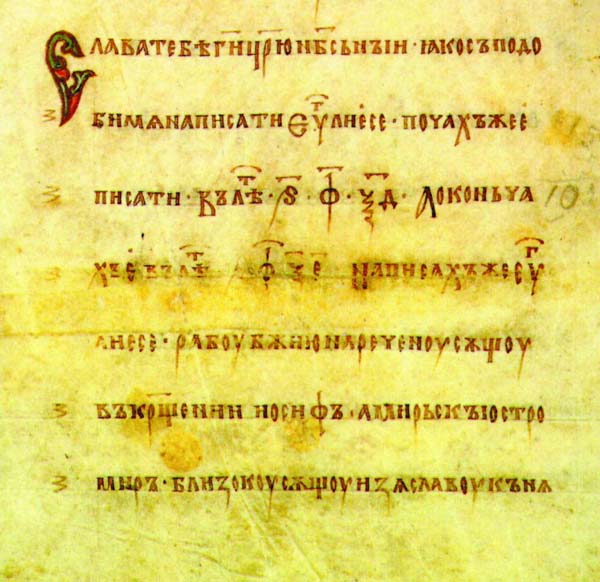 Слава тебѣ г҃и цр҃ю нб҃сьныи · ꙗко съподо
би мѧ написати еу҃ⷢ҇лие се · почахъ же е
писати · въ лѣ҃ⷮ · ѕ҃ · ф҃ · ч҃д · А оконьча
хъ е въ лѣ҃ⷮ · ѕ҃ · ф҃ · ч҃е · Написахъ же еу҃ⷢ҇
лие се · рабоу б҃жию нареченоу сѫщоу
въ кр҃щении иосифъ · а мирьскы остро
миръ · близокоу сѫщоу изѧславоу кънѧ